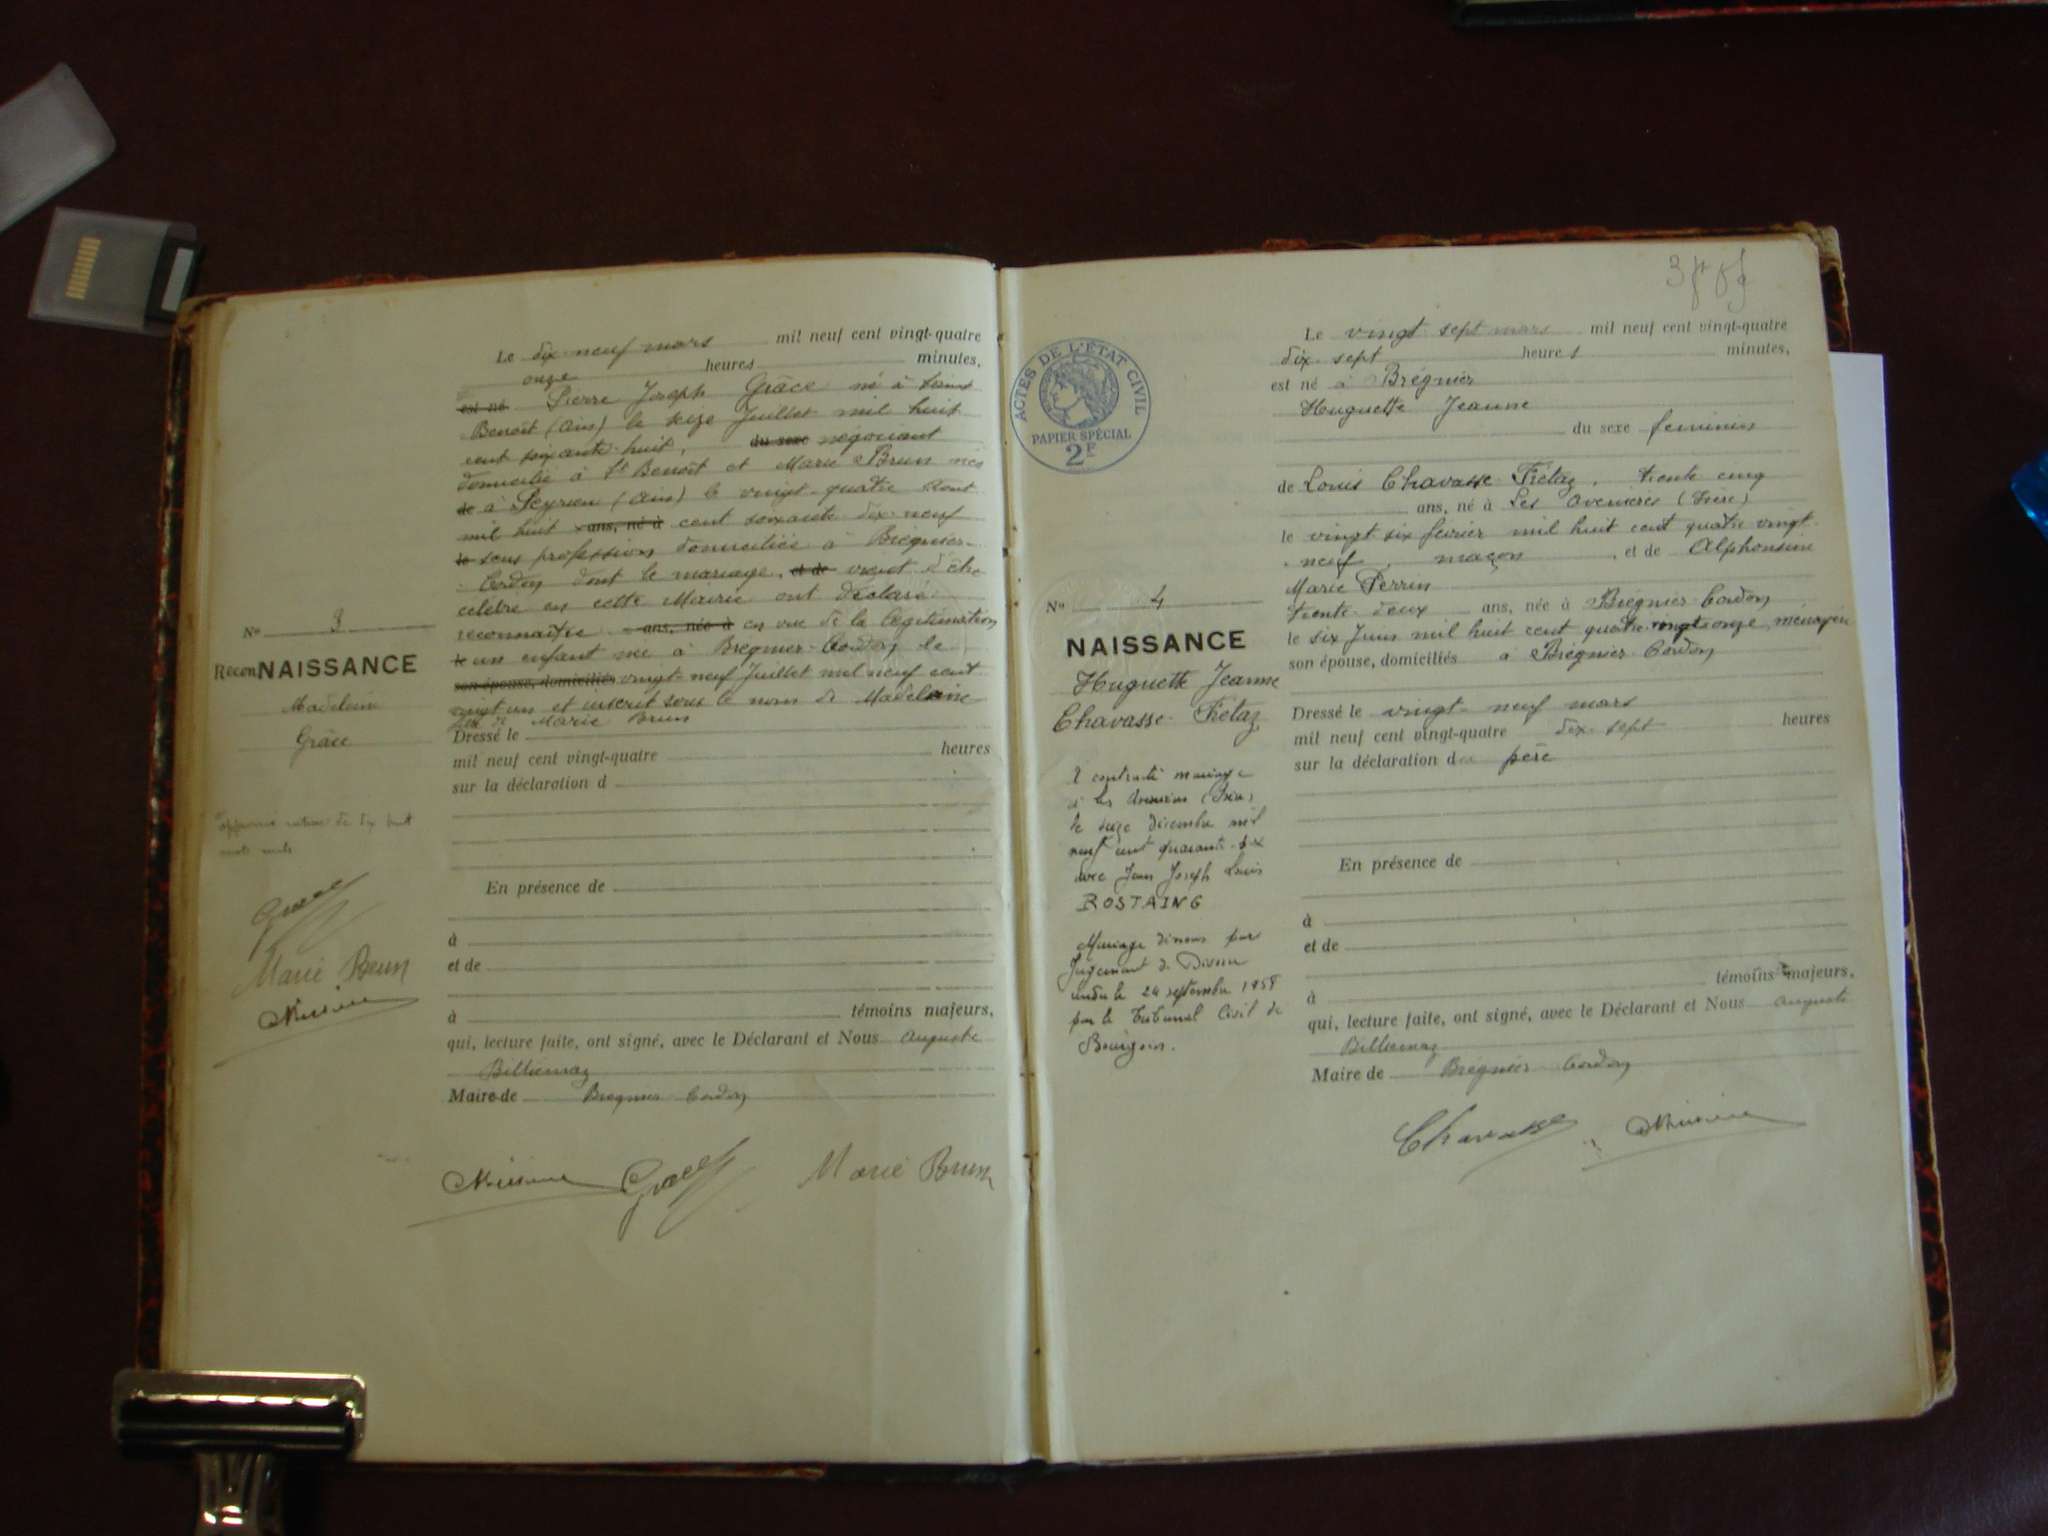 Le dix neuf mars mil neuf cent vingt-quatre
onze heures minutes,
est né Pierre Joseph Grâce né à Saint
Benoît (Ain) le seize Juillet mil huit
cent soixante-huit, du sexe négociant
domicilié à St Benoît et Marie Brun née
de à Peyrieu (Ain) le vingt-quatre Aout
mil huit ans, né à cent soixante dix-neuf
le sans profession domiciliée à Brégnier-
Cordon dont le mariage, et de vient d'être
célébré en cette Mairie ont déclaré
reconnaître ans, née à en vue de la légitimation
le un enfant née à Brégnier-Cordon le
son épouse, domiciliés vingt-neuf Juillet mil neuf cent
vingt un et inscrit sous le nom de Madeleine
Marie Brun
Dressé le
mil neuf cent vingt-quatre heures
sur la déclaration d
En présence de
à
et de
à témoins majeurs,
qui, lecture faite, ont signé, avec le Déclarant et Nous Auguste
Billiemaz
Maire de Brégnier Cordon
Grâce Marie Brun
No 3
Recon NAISSANCE
Madeleine
Grâce
Grâce
Marie Brun
3
ACTES DE L'ÉTAT CIVIL
PAPIER SPÉCIAL
2F
Le vingt sept mars mil neuf cent vingt-quatre
dix sept heures minutes,
est né à Brégnier
Huguette Jeanne
du sexe feminin
de Louis Chavasse-Frétaz, trente cinq
ans, né à Les Avenières (Isère)
le vingt six février mil huit cent quatre vingt
neuf, maçon, et de Alphonsine
Marie Perrin
trente-deux ans, née à Brégnier-Cordon
le six Juin mil huit cent quatre-vingt onze, ménagère
son épouse, domiciliés à Brégnier-Cordon
Dressé le vingt-neuf mars
mil neuf cent vingt-quatre dix-sept heures
sur la déclaration du père
En présence de
à
et de
à témoins majeurs,
qui, lecture faite, ont signé, avec le Déclarant et Nous Auguste
Billiemaz
Maire de Brégnier Cordon
Chavasse
No 4
NAISSANCE
Huguette Jeanne
Chavasse-Frétaz
A contracté mariage
à les Avenières (Isère)
le seize décembre mil
neuf cent quarante-six
avec Jean Joseph Louis
ROSTAING
Mariage dissous par
Jugement de Divorce
rendu le 24 septembre 1958
par le Tribunal Civil de
Bourgoin.